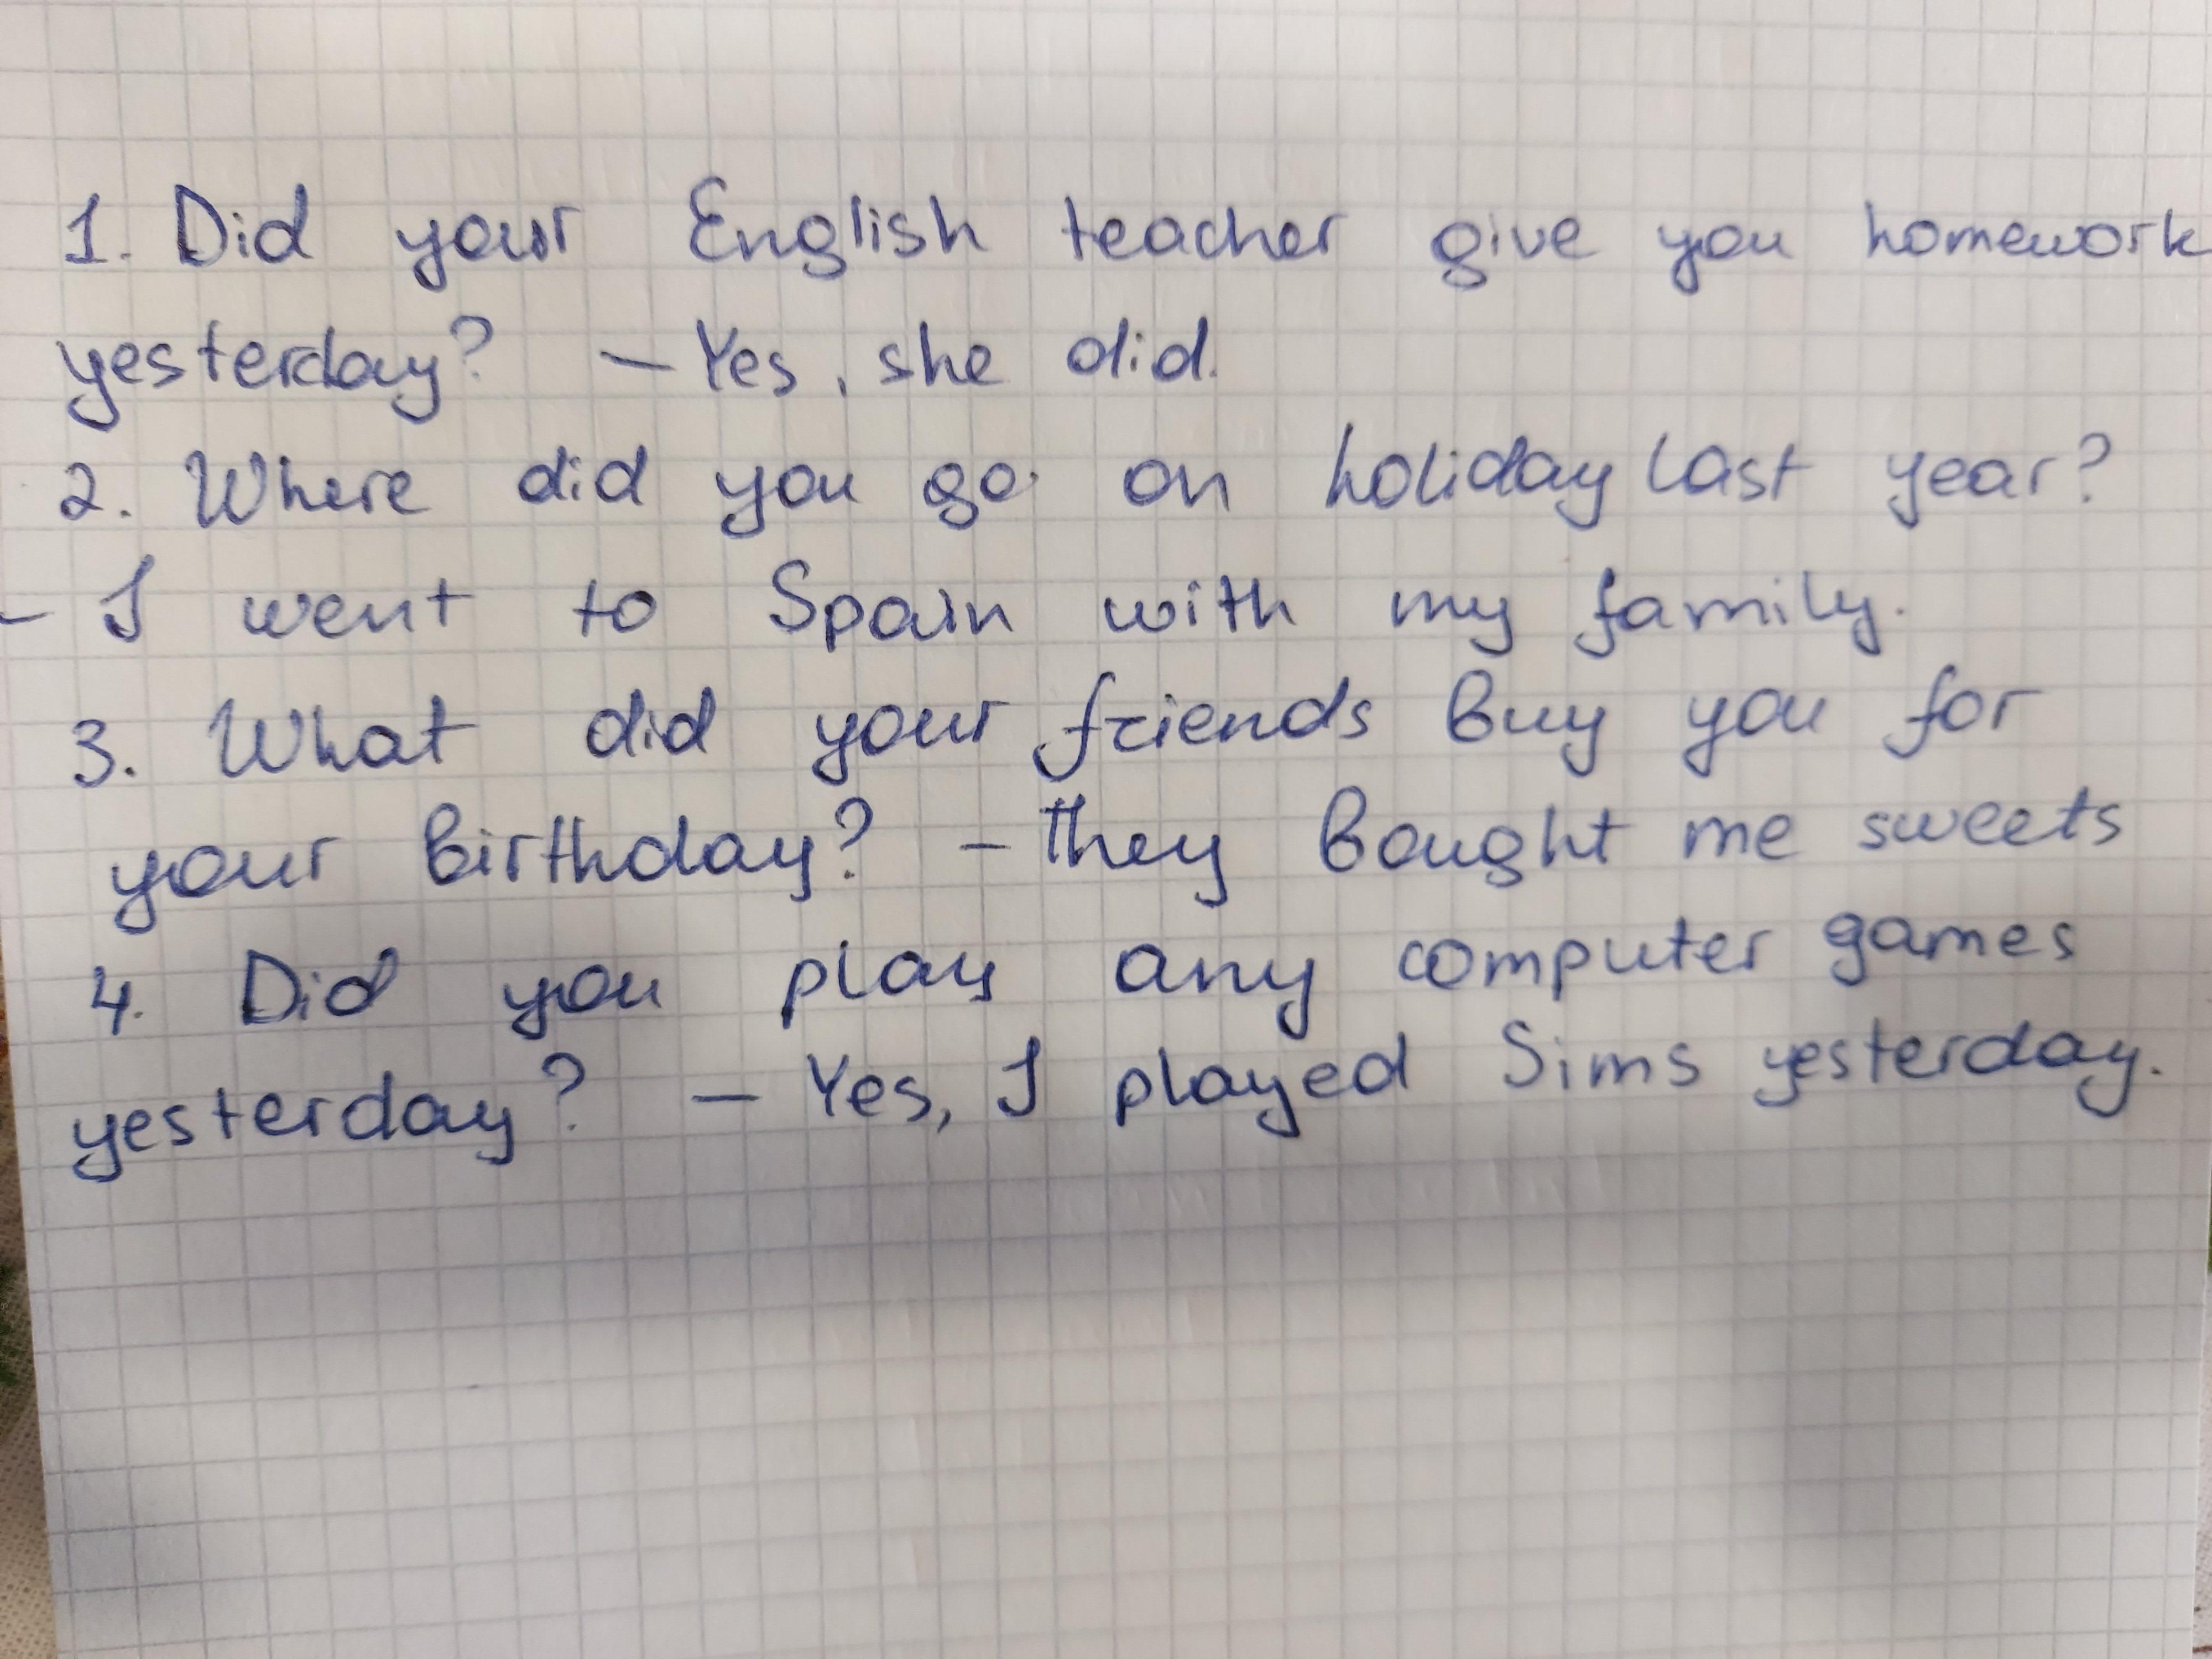 1. Did your English teacher give you homework
yesterday? – Yes, she did.
2. Where did you go on holiday last year?
- I went to Spain with my family.
3. What did your friends buy you for
your birthday? – They bought me sweets
4. Did you play any computer games
yesterday? – Yes, I played Sims yesterday.